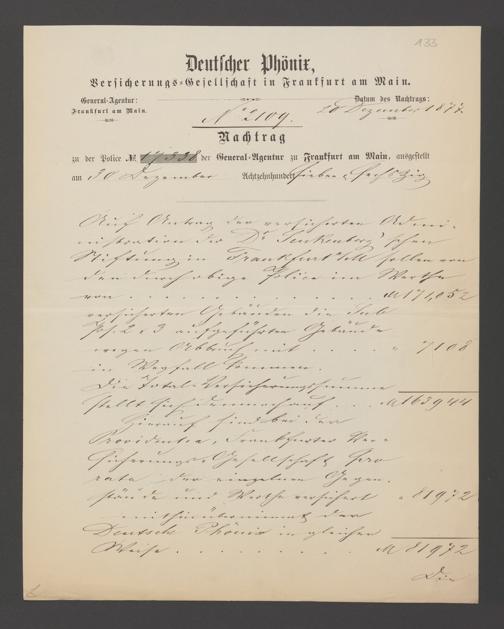 133
Deutscher Phönix,
Versicherungs-Gesellschaft in Frankfurt am Main.
General-Agentur:
Frankfurt am Main.
Datum des Nachtrags:
26 Dezember 1877.
No 2109.
Nachtrag
zu der Police No. 17338 der General-Agentur zu Frankfurt am Main, ausgestellt
am 30 Dezember Achtzehnhundert sieben u. sechszig
Auf Antrag der versicherten Admi-
nistration der Dr Senkenberg'schen
Stiftung in Frankfurt a/M sollen von
den durch obige Police im Werthe
von . . . . . . . . . M 171,052
versicherten Gebäuden die sub
Pos. 2 & 3 aufgeführten Gebäude
wegen Abbruch mit . . . . " 7108
in Wegfall kommen.
Die Total-Versicherungssumme
stellt sich demnach auf . . . M 163944
Hierauf sind bei der
Providentia, Frankfurter Ver-
sicherungs-Gesellschaft pro
rata der einzelnen Gegen-
stände und Werthe versichert " 81972
mithin übernimmt der
Deutsche Phönix in gleicher
Weise . . . . . . . . . M 81972
Die